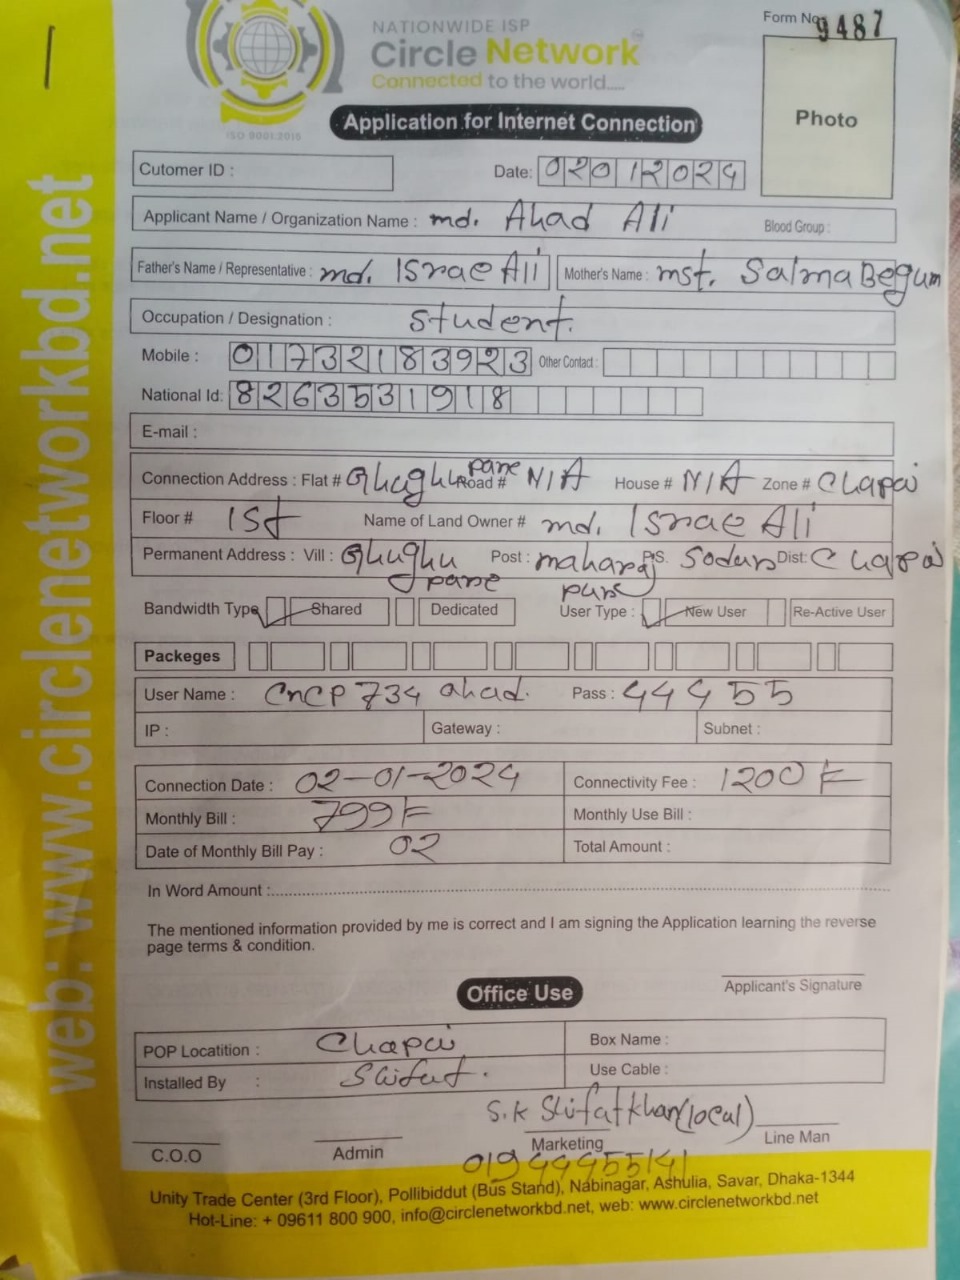 NATIONWIDE ISP
Circle Network
Connected to the world....
ISO 9001:2015
Form No 9487
Photo
Application for Internet Connection
Cutomer ID :
Date: 02012024
Applicant Name / Organization Name : md. Ahad Ali
Blood Group :
Father's Name / Representative : md. Israe Ali
Mother's Name : mst. Salma Begum
Occupation / Designation : Student.
Mobile : 01732183923
Other Contact :
National Id: 8263531918
E-mail :
Connection Address : Flat # Ghughu pane Road # N/A House # N/A Zone # Chapai
Floor # 1st Name of Land Owner # md. Israe Ali
Permanent Address : Vill : Ghughu pane Post : maharaj pur P.S. Sodur Dist: Chapai
Bandwidth Type Shared Dedicated User Type : New User Re-Active User
Packeges
User Name : CnCP734 ahad. Pass : 44455
IP : Gateway : Subnet :
Connection Date : 02-01-2024 Connectivity Fee : 1200
Monthly Bill : 799 Monthly Use Bill :
Date of Monthly Bill Pay : 02 Total Amount :
In Word Amount :
The mentioned information provided by me is correct and I am signing the Application learning the reverse
page terms & condition.
Applicant's Signature
Office Use
POP Locatition : Chapai Box Name :
Installed By : Use Cable :
S.K Shifat khan(local)
C.O.O Admin Marketing Line Man
Unity Trade Center (3rd Floor), Pollibiddut (Bus Stand), Nabinagar, Ashulia, Savar, Dhaka-1344
Hot-Line: + 09611 800 900, info@circlenetworkbd.net, web: www.circlenetworkbd.net
web: www.circlenetworkbd.net